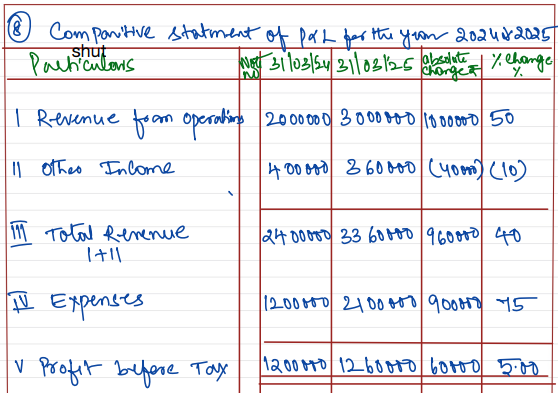 ⑧ Comparitive statment of P&L for the year 2024&2025
shut
Particulars Not no 31/03/24 31/03/25 absolute change ₹ % change %
I Revenue from operations 2000000 3000000 1000000 50
II Other Income 400000 360000 (40000) (10)
III Total Revenue 2400000 3360000 960000 40
I+II
IV Expenses 1200000 2100000 900000 75
V Profit before Tax 1200000 1260000 60000 5.00